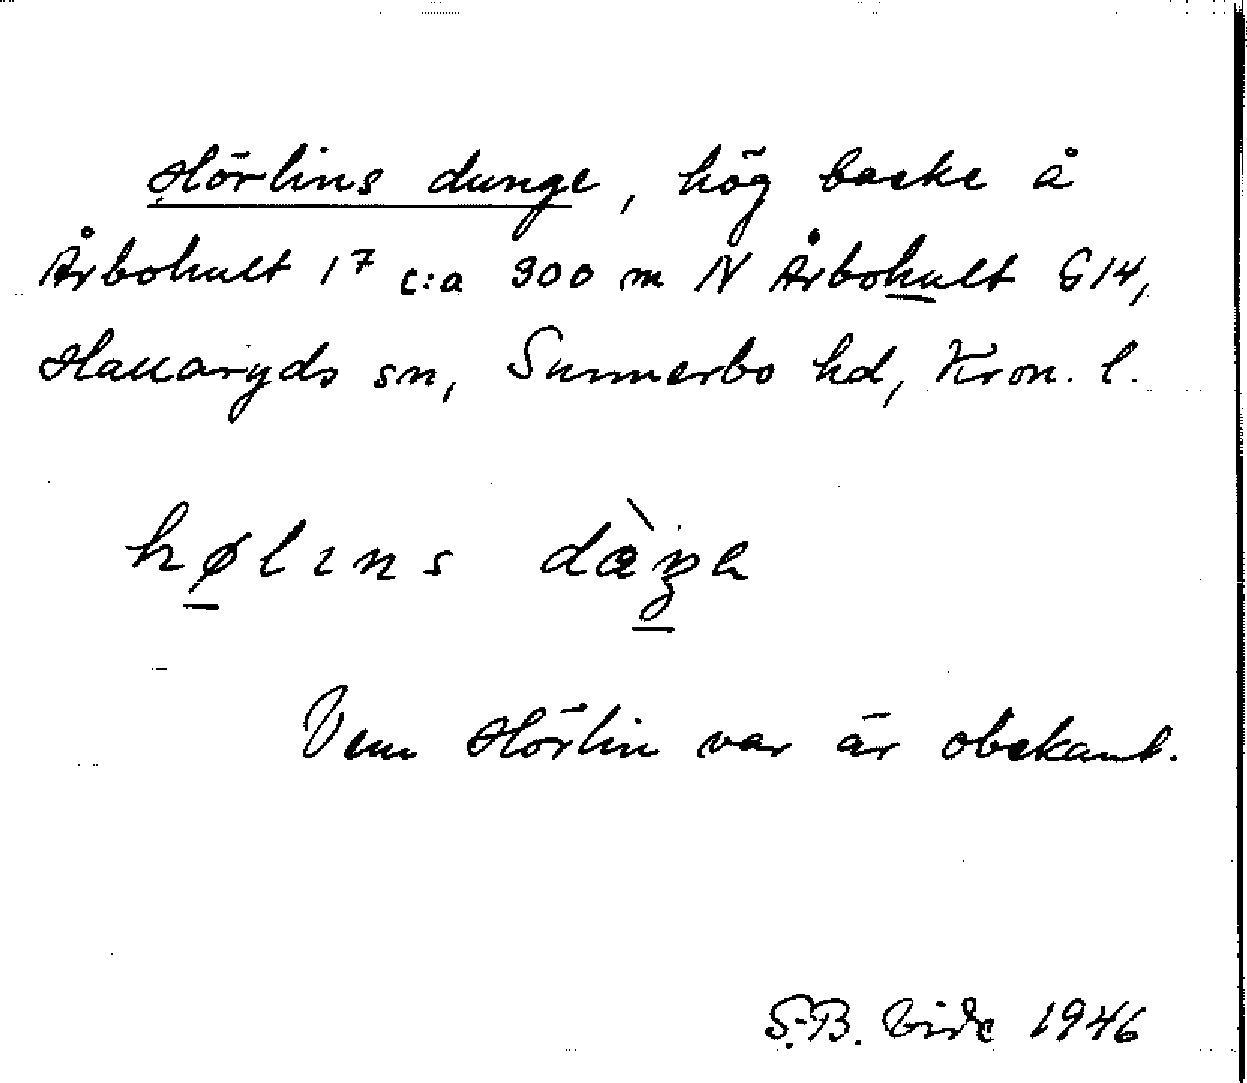 Hörlins dunge, hög backe å
Årbohult 1⁷ c:a 300 m N Årbohult G14,
Hallaryds sn, Sunnerbo hd, Kron. l.
hølins
Vem Hörlin var är obekant.
S.-B. Vide 1946